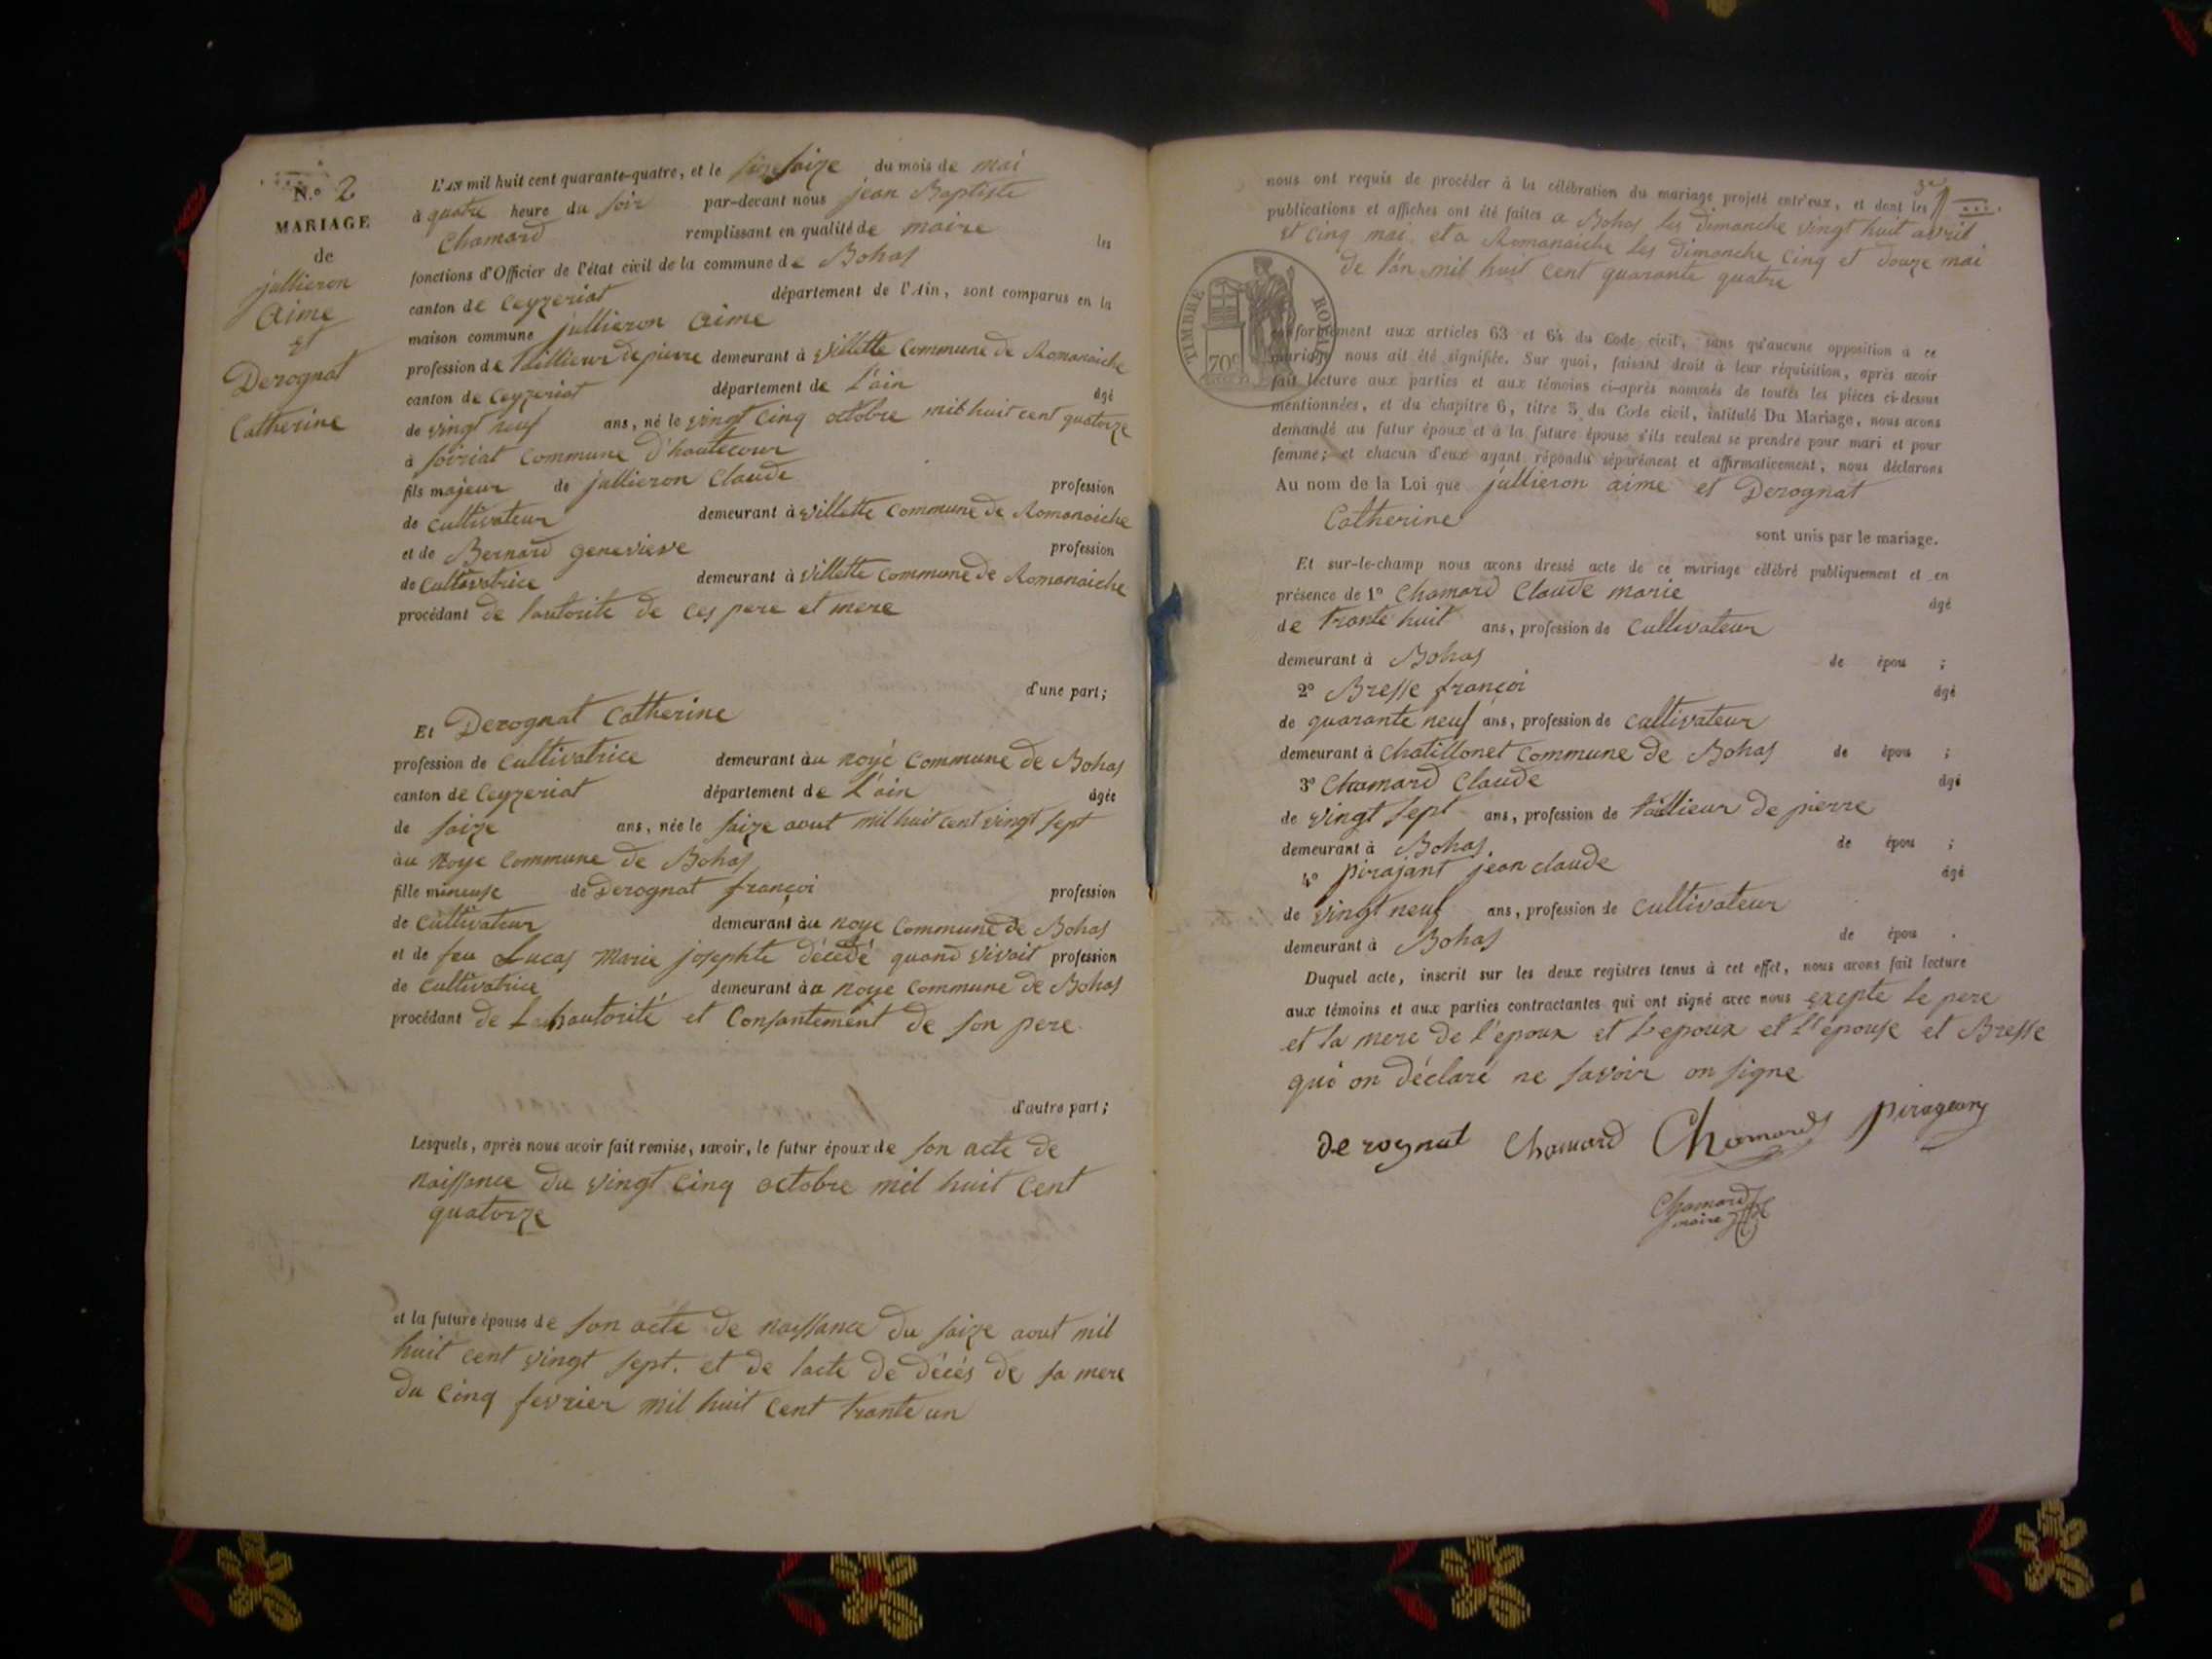 N.o 2
MARIAGE
de
jullieron
Aime
et
Derognat
Catherine
L'AN mil huit cent quarante-quatre, et le saize du mois de mai
à quatre heure du soir par-devant nous jean Baptiste
Chamard remplissant en qualité de maire les
fonctions d'Officier de l'état civil de la commune de Bohas
canton de Ceyzeriat département de l'Ain, sont comparus en la
maison commune jullieron Aime
profession de taillieur de pierre demeurant à villette Commune de Romanaiche
canton de Ceyzeriat département de L'ain âgé
de vingt neuf ans, né le vingt cinq octobre mil huit cent quatorze
à soiriat Commune d'hautecour
fils majeur de jullieron Claude profession
de cultivateur demeurant à villette Commune de Romanaiche
et de Bernard genevieve profession
de Cultivatrice demeurant à villette Commune de Romanaiche
procédant de l'autorite de ces pere et mere
d'une part;
Et Derognat Catherine
profession de Cultivatrice demeurant àu noyé Commune de Bohas
canton de Ceyzeriat département de L'ain âgée
de saize ans, née le saize aout mil huit cent vingt sept
àu noye Commune de Bohas
fille mineuse de Derognat françoi profession
de cultivateur demeurant àu noye Commune de Bohas
et de feu Lucas Marie josephte décedé quand vivait profession
de cultivatrice demeurant àu noye Commune de Bohas
procédant de L'hautorité et Consantement de son pere
d'autre part;
Lesquels, après nous avoir fait remise, savoir, le futur époux de son acte de
naissance du vingt cinq octobre mil huit cent
quatorze
et la future épouse de son acte de naissance du saize aout mil
huit cent vingt sept. et de lacte de décés de sa mere
du cinq fevrier mil huit cent trante un
nous ont requis de procéder à la célébration du mariage projeté entr'eux, et dont les
publications et affiches ont été faites a Bohas les dimanche vingt huit avril
et cinq mai et a Romanaiche les dimanche cinq et douze mai
de l'an mil huit cent quarante quatre
TIMBRE ROYAL
70c
conformément aux articles 63 et 64 du Code civil, sans qu'aucune opposition à ce
mariage nous ait été signifiée. Sur quoi, faisant droit à leur réquisition, après avoir
fait lecture aux parties et aux témoins ci-après nommés de toutes les pièces ci-dessus
mentionnées, et du chapitre 6, titre 5 du Code civil, intitulé Du Mariage, nous avons
demandé au futur époux et à la future épouse s'ils veulent se prendre pour mari et pour
femme; et chacun d'eux ayant répondu séparément et affirmativement, nous déclarons
Au nom de la Loi que jullieron aime et Derognat
Catherine
sont unis par le mariage.
Et sur-le-champ nous avons dressé acte de ce mariage célébré publiquement et en
présence de 1o Chamard Claude marie âgé
de trante huit ans, profession de cultivateur
demeurant à Bohas de épou ;
2o Bresse françoi âgé
de quarante neuf ans, profession de cultivateur
demeurant à Chatillonet Commune de Bohas de épou ;
3o Chamard Claude âgé
de vingt sept ans, profession de taillieur de pierre
demeurant à Bohas de épou ;
4o pirajant jean claude âgé
de vingt neuf ans, profession de cultivateur
demeurant à Bohas de épou .
Duquel acte, inscrit sur les deux registres tenus à cet effet, nous avons fait lecture
aux témoins et aux parties contractantes qui ont signé avec nous exepte le pere
et la mere de l'epoux et l'epoux et l'épouse et Bresse
qui on déclaré ne savoir on signe
Derognat Chamard Chamard pirageant
Chamard
maire